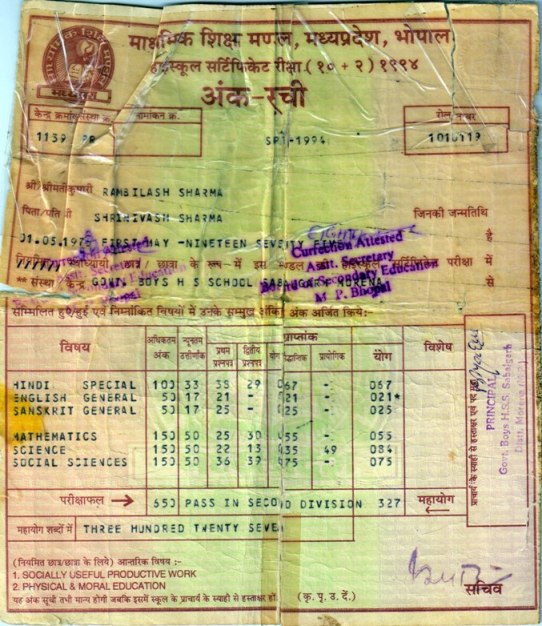 माध्यमिक शिक्षा मण्डल, मध्यप्रदेश, भोपाल
हाईस्कूल सर्टिफिकेट परीक्षा (१० + २) १९९४
अंक-सूची
केन्द्र क्रमांक/संस्था क्र. नामांकन क्र. रोल नम्बर
1139 1994 1010119
श्री/श्रीमती/कुमारी RAMBILASH SHARMA
पिता/पति श्री SHRINIVASH SHARMA जिनकी जन्मतिथि
01.05.1975 FIRST MAY -NINETEEN SEVENTY FIVE है
Correction Attested
Asstt. Secretary
Secondary Education
M. P. Bhopal
छात्र / छात्रा के रूप-में इस मण्डल की सर्टिफिकेट परीक्षा में
** संस्था/केन्द्र GOVT. BOYS H S SCHOOL SABALGARH MORENA से
सम्मिलित हुऐ/हुई एवं निम्नांकित विषयों में उनके सम्मुख अंकित अंक अर्जित किये:
विषय अधिकतम अंक न्यूनतम उत्तीर्णांक प्राप्तांक विशेष
प्रथम प्रश्नपत्र द्वितीय प्रश्नपत्र योग सैद्धान्तिक प्रायोगिक योग
HINDI SPECIAL 100 33 38 29 067 - 067
ENGLISH GENERAL 50 17 21 - 021 - 021*
SANSKRIT GENERAL 50 17 25 - 025 - 025
MATHEMATICS 150 50 25 30 055 - 055
SCIENCE 150 50 22 13 035 49 084
SOCIAL SCIENCES 150 50 36 39 075 - 075
परीक्षाफल → 650 PASS IN SECOND DIVISION 327 महायोग ←
महायोग शब्दों में THREE HUNDRED TWENTY SEVEN
प्राचार्य के स्याही से हस्ताक्षर एवं पद मुद्रा
PRINCIPAL
Govt. Boys H.S.S. Sabalgarh
Distt. Morena (M.P.)
(नियमित छात्र/छात्रा के लिये) आन्तरिक विषय :-
1. SOCIALLY USEFUL PRODUCTIVE WORK
2. PHYSICAL & MORAL EDUCATION
यह अंक सूची तभी मान्य होगी जबकि इसमें स्कूल के प्राचार्य के स्याही से हस्ताक्षर हों. (कृ. पृ. उ. दें.)
सचिव